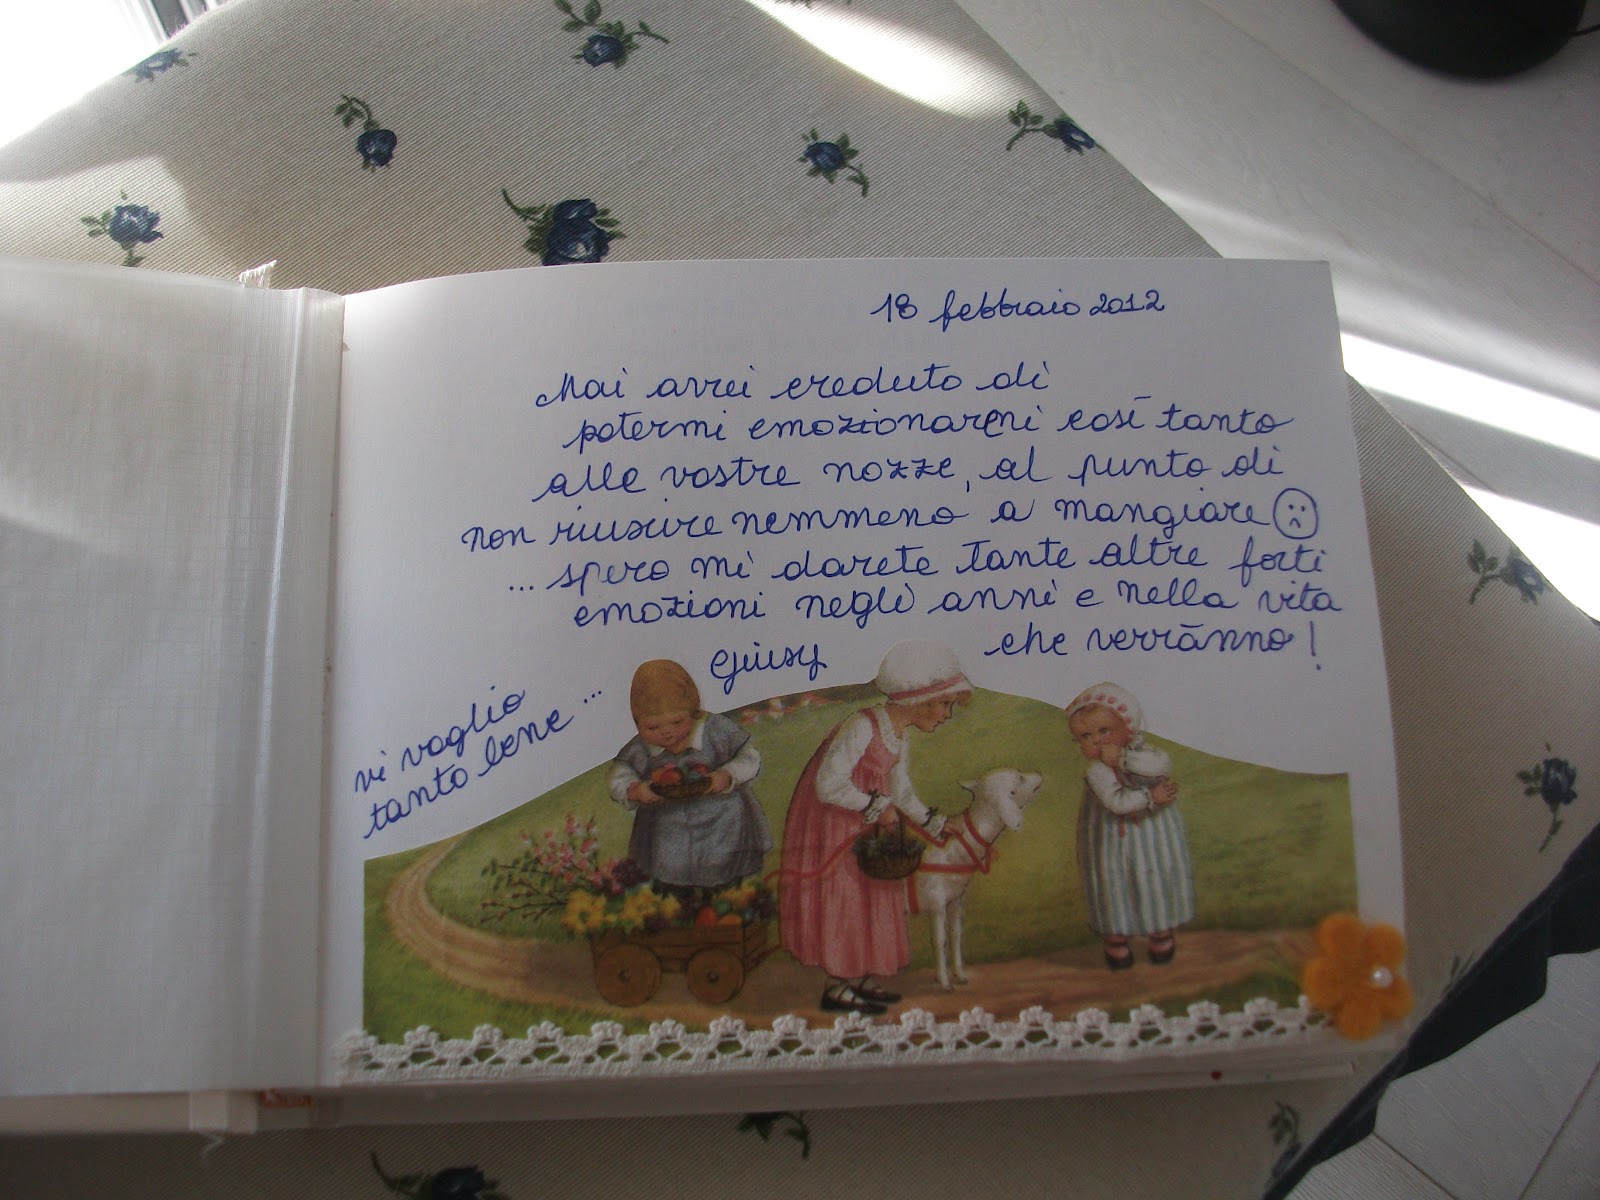 18 febbraio 2012
Mai avrei creduto di
potermi emozionarmi così tanto
alle vostre nozze, al punto di
non riuscire nemmeno a mangiare
... spero mi darete tante altre forti
emozioni negli anni e nella vita
che verranno!
Giusy
vi voglio
tanto bene ...